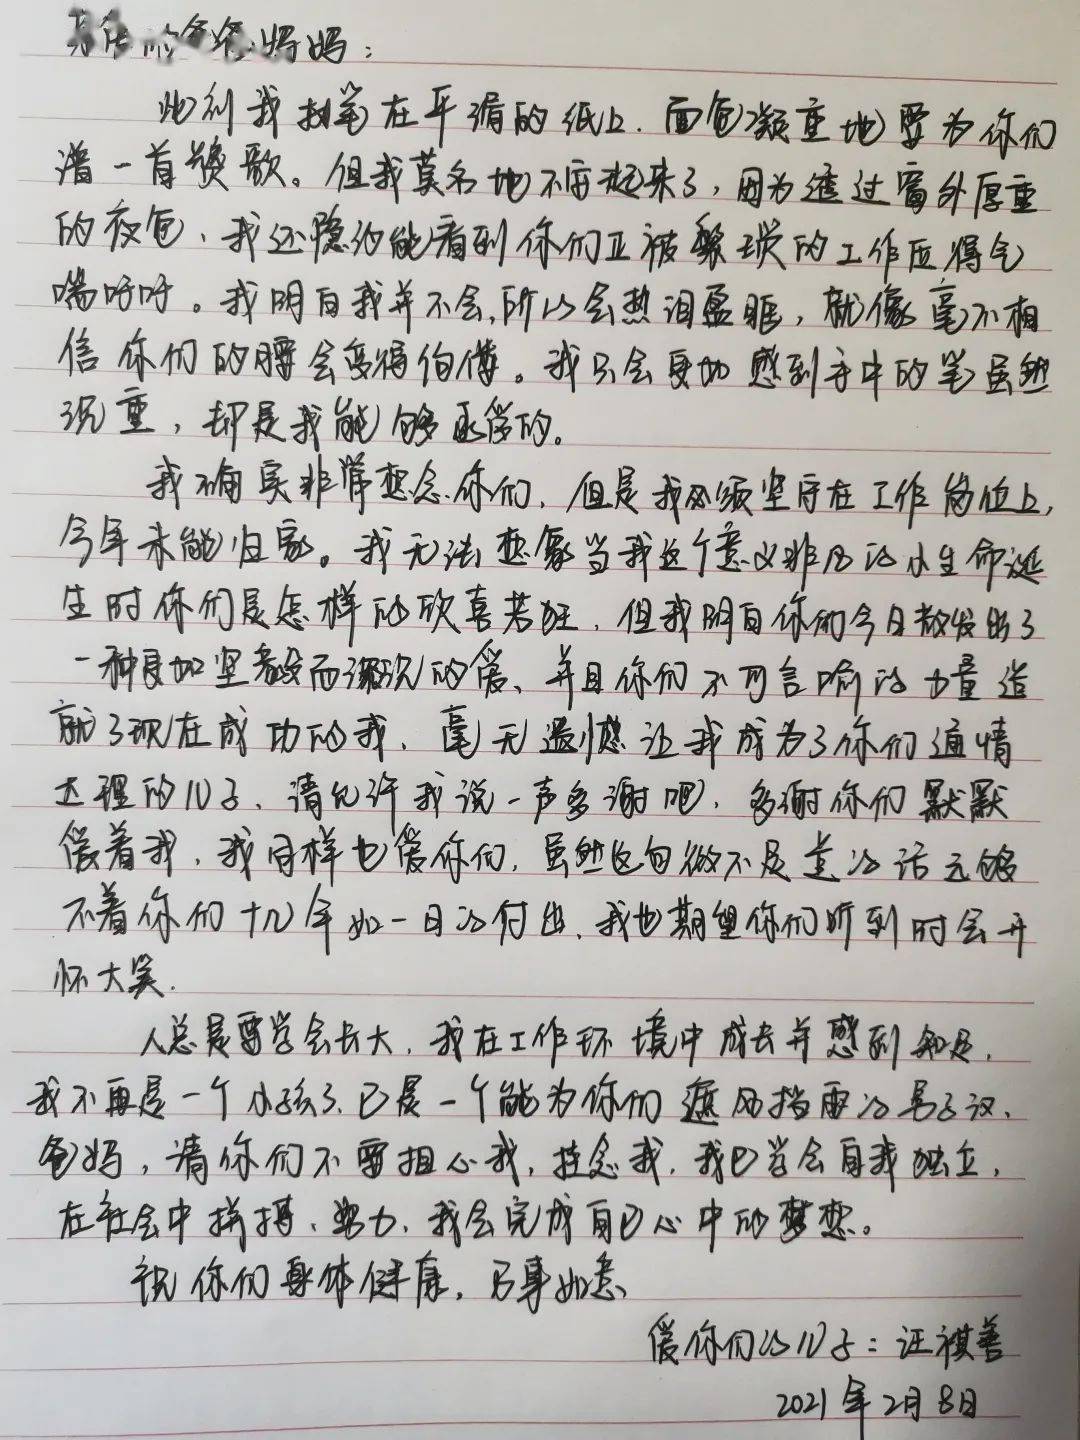 爸妈妈：
此刻我执笔在平滑的纸上，面色凝重地要为你们
谱一首赞歌。但我莫名地不安起来了，因为透过窗外厚重
的夜色，我还隐约能看到你们正被繁琐的工作压得气
喘吁吁。我明白我并不会，所以会热泪盈眶，就像毫不相
信你们的腰会变得佝偻。我只会更加感到手中的笔虽然
沉重，却是我能够承受的。
我确实非常想念你们，但是我必须坚守在工作岗位上，
今年未能归家。我无法想象当我这个意义非凡的小生命诞
生时你们是怎样的欣喜若狂，但我明白你们今日散发出了
一种更加坚毅而深沉的爱、并且你们不可言喻的力量造
就了现在成功的我，毫无遗憾让我成为了你们通情
达理的儿子，请允许我说一声多谢吧，多谢你们默默
爱着我，我同样也爱你们，虽然这句微不足道的话元够
不着你们十几年如一日的付出，我也期望你们听到时会开
怀大笑.
人总是要学会长大，我在工作环境中成长并感到知足，
我不再是一个小孩了，已是一个能为你们遮风挡雨的男子汉，
爸妈，请你们不要担心我，挂念我，我已学会自我独立，
在社会中拼搏、努力，我会完成自己心中的梦想。
祝你们身体健康，万事如意
爱你们的儿子：汪祺善
2021年2月8日